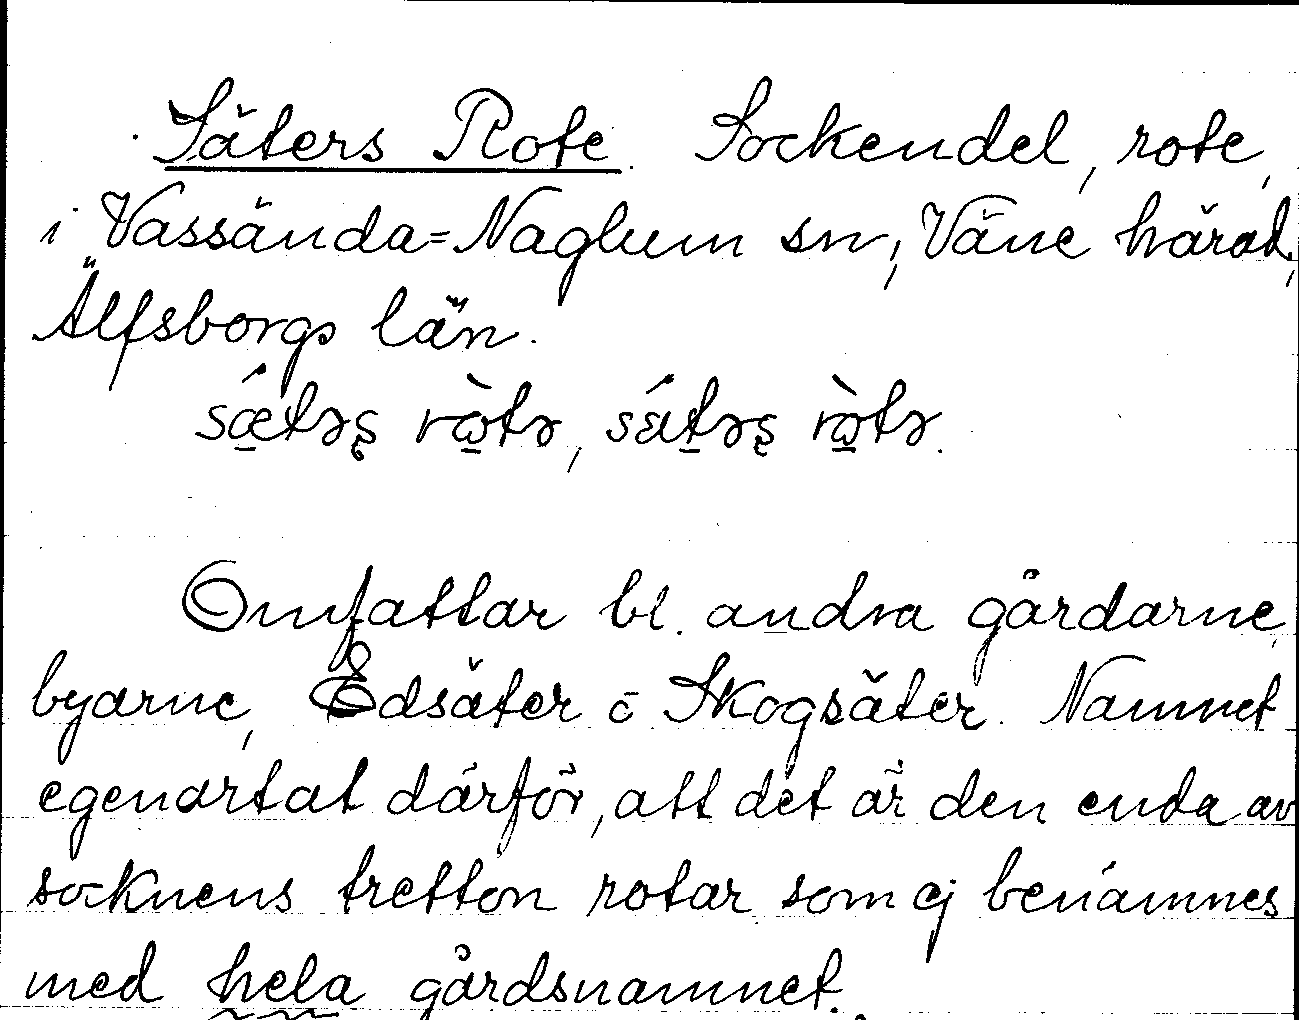 Säters Rote. Sockendel, rote,
i Vassända=Naglum sn, Väne härad,
Älfsborgs län.
sǽtəʂ rɷ̀tə, sǽtəʂ rɷ̀tə.
Omfattar bl. andra gårdarne,
byarne, Edsäter o Skogsäter. Namnet
egenartat därför, att det är den enda av
socknens tretton rotar som ej benämnes
med hela gårdsnamnet.